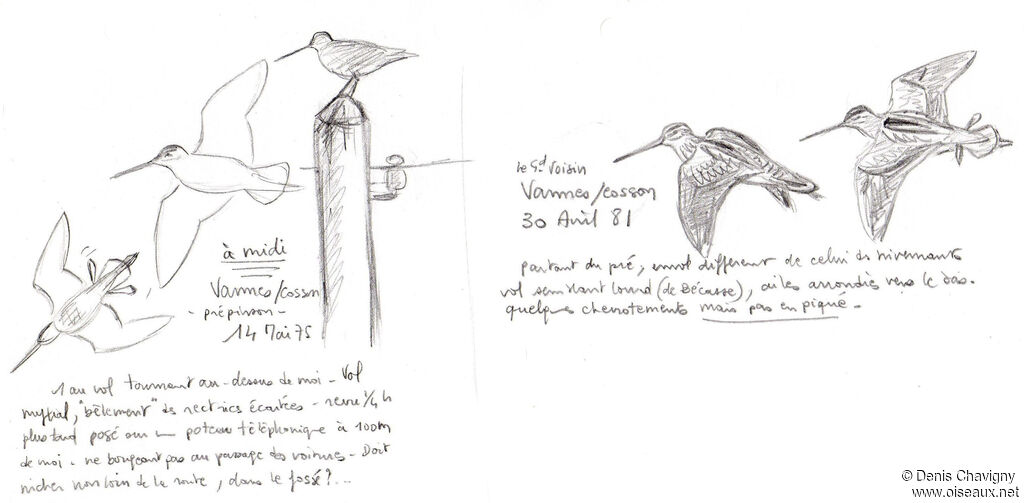 à midi
Vannes/Cosson
- prépinson -
14 Mai 75
1 au vol tournant au-dessus de moi - Vol
nuptial, "bêlement" des rectrices écartées - revu 1/4 h
plus tard posé sur un poteau téléphonique à 100m
de moi - ne bougeant pas au passage des voitures - Doit
nicher non loin de la route, dans le fossé ?...
le Gd Voisin
Vannes/Cosson
30 Avril 81
partant du pré, envol différent de celui des hivernants
vol semblant lourd (de Bécasse), ailes arrondies vers le bas.
quelques chevrotements mais pas en piqué -
© Denis Chavigny
www.oiseaux.net